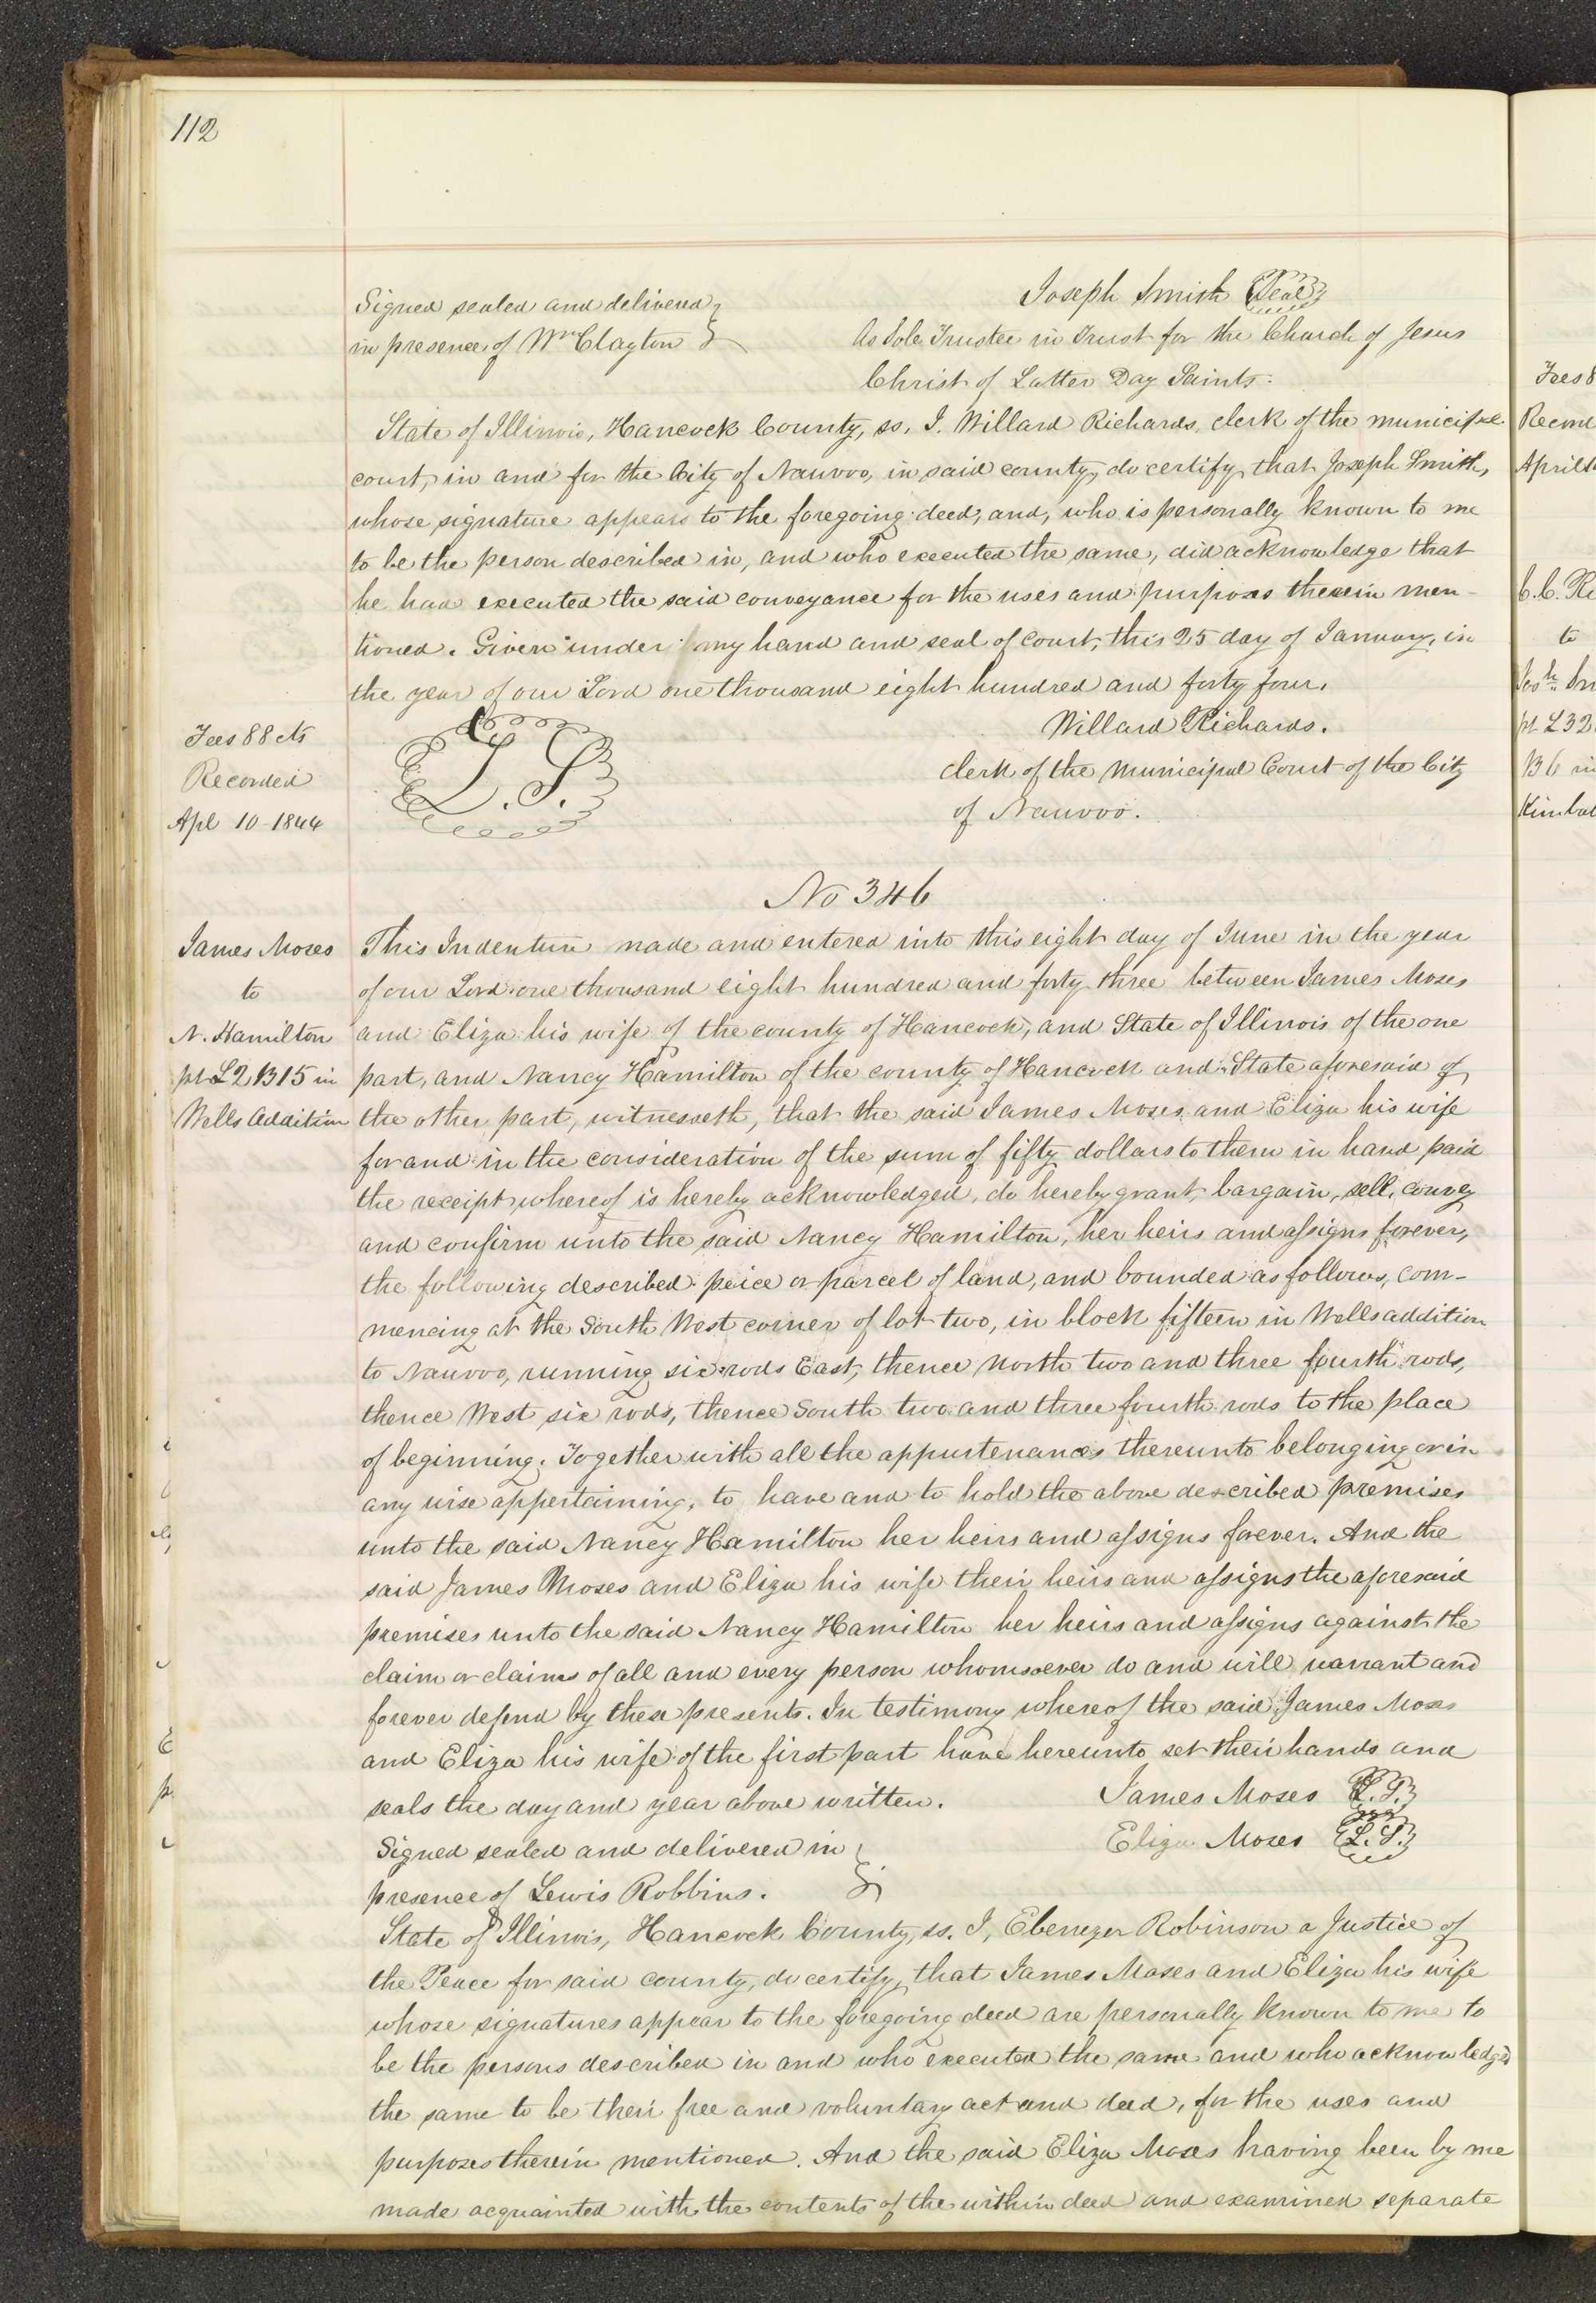 112
Signed sealed and delivered
in presence of Wm Clayton
Joseph Smith Seal
As Sole Trustee in Trust for the Church of Jesus
Christ of Latter Day Saints.
State of Illinois, Hancock County, ss, I. Willard Richards, clerk of the municipal
court, in and for the City of Nauvoo, in said county, do certify, that Joseph Smith,
whose signature appears to the foregoing deed, and, who is personally known to me
to be the person described in, and who executed the same, did acknowledge that
he had executed the said conveyance for the uses and purposes therein men-
tioned. Given under my hand and seal of court, this 25 day of January, in
the year of our Lord one thousand eight hundred and forty four.
L.S.
Willard Richards.
clerk of the Municipal Court of the City
of Nauvoo.
Fees 88 cts
Recorded
Apl 10 - 1844
No 346
James Moses
to
N. Hamilton
pt L2 B15 in
Wells Addition
This Indenture made and entered into this eight day of June in the year
of our Lord one thousand eight hundred and forty three between James Moses
and Eliza his wife of the county of Hancock, and State of Illinois of the one
part, and Nancy Hamilton of the county of Hancock and State aforesaid of
the other part, witnesseth, that the said James Moses and Eliza his wife
for and in the consideration of the sum of fifty dollars to them in hand paid
the receipt whereof is hereby acknowledged, do hereby grant, bargain, sell, convey
and confirm unto the said Nancy Hamilton, her heirs and assigns forever,
the following described peice or parcel of land, and bounded as follows, com-
mencing at the South West corner of lot two, in block fifteen in Wells addition
to Nauvoo, running six rods East, thence North two and three fourth rods,
thence West six rods, thence South two and three fourth rods to the place
of beginning. Together with all the appurtenances thereunto belonging or in
any wise appertaining, to have and to hold the above described premises
unto the said Nancy Hamilton her heirs and assigns forever. And the
said James Moses and Eliza his wife their heirs and assigns the aforesaid
premises unto the said Nancy Hamilton her heirs and assigns against the
claim or claims of all and every person whomsoever do and will warrant and
forever defend by these presents. In testimony whereof the said James Moses
and Eliza his wife of the first part have hereunto set their hands and
seals the day and year above written.
James Moses L.S.
Eliza Moses L.S.
Signed sealed and delivered in
presence of Lewis Robbins.
State of Illinois, Hancock County, ss. I, Ebenezer Robinson a Justice of
the Peace for said county, do certify, that James Moses and Eliza his wife
whose signatures appear to the foregoing deed are personally known to me to
be the persons described in and who executed the same and who acknowledged
the same to be their free and voluntary act and deed, for the uses and
purposes therein mentioned. And the said Eliza Moses having been by me
made acquainted with the contents of the within deed and examined separate
Fees 8
Record
April
C.C. Ri
to
pt L32
B6 in
Kimbal